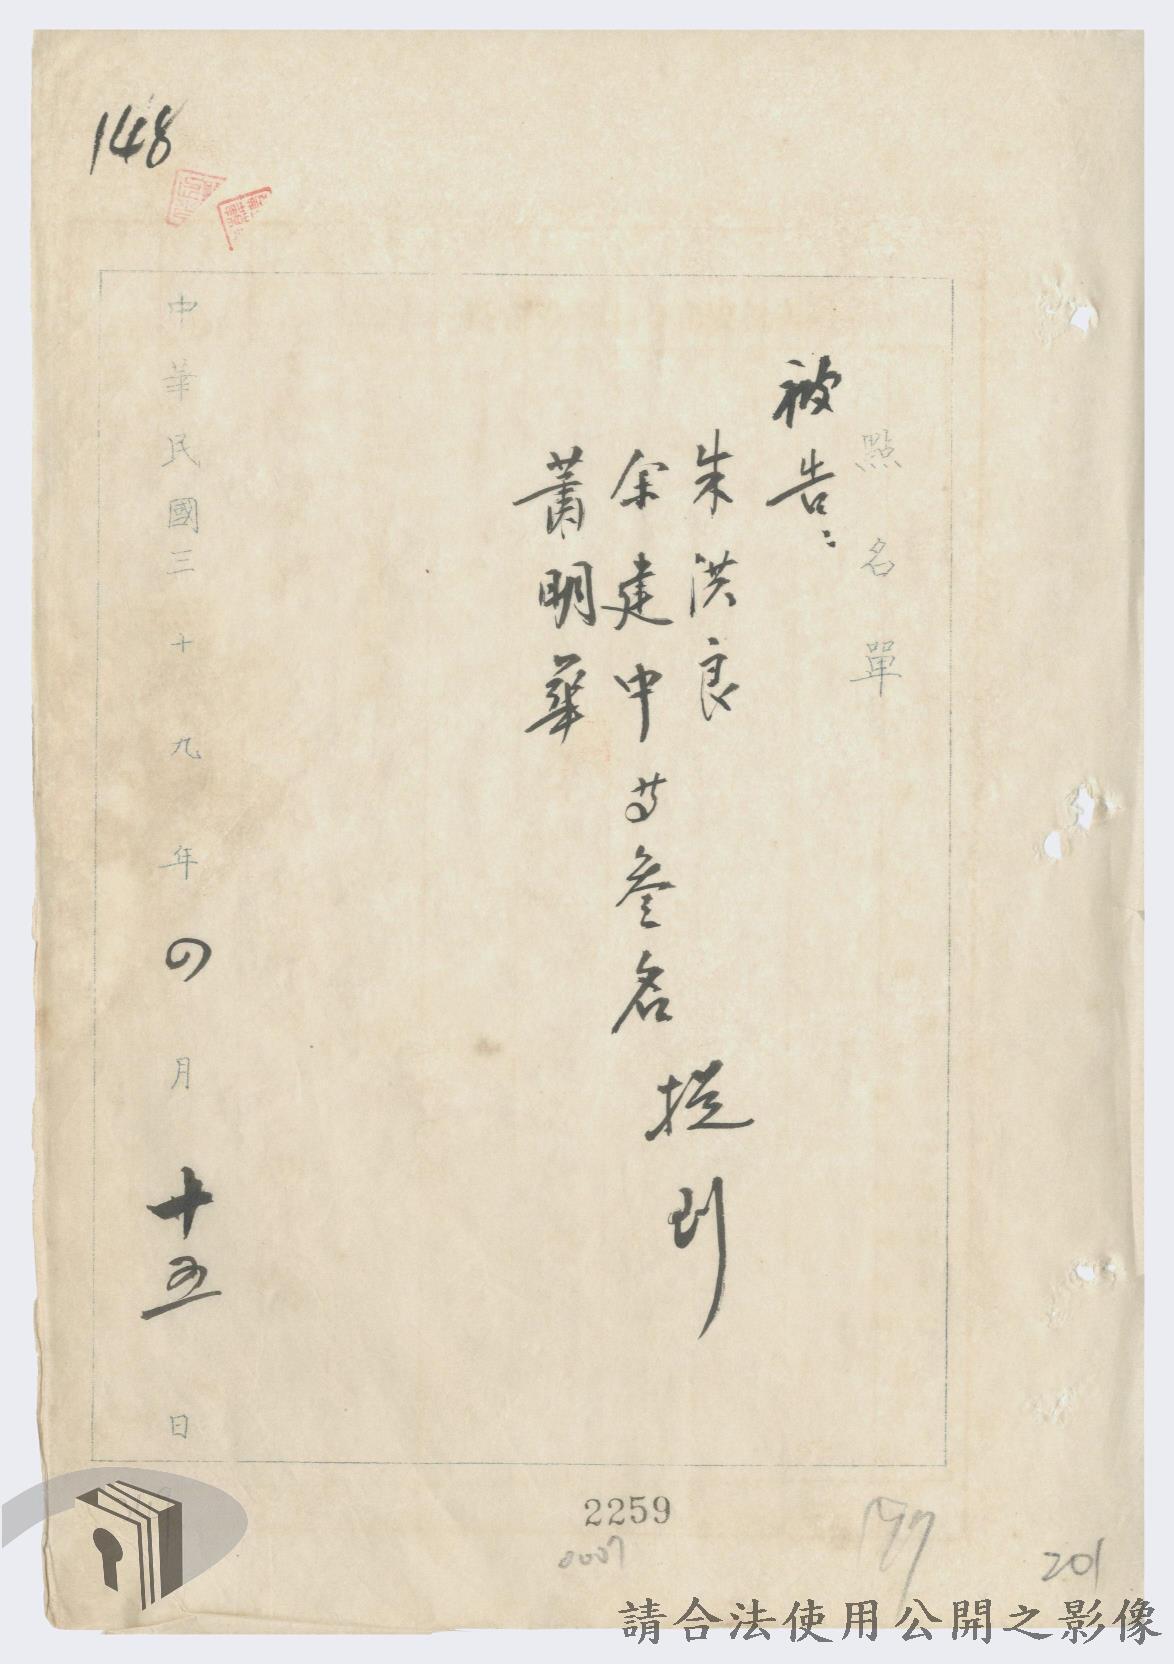 148
點名單
被告：
朱洪良
余建中等叁名提到
蕭明華
中華民國三十九年四月十五日
2259
0007
201
請合法使用公開之影像